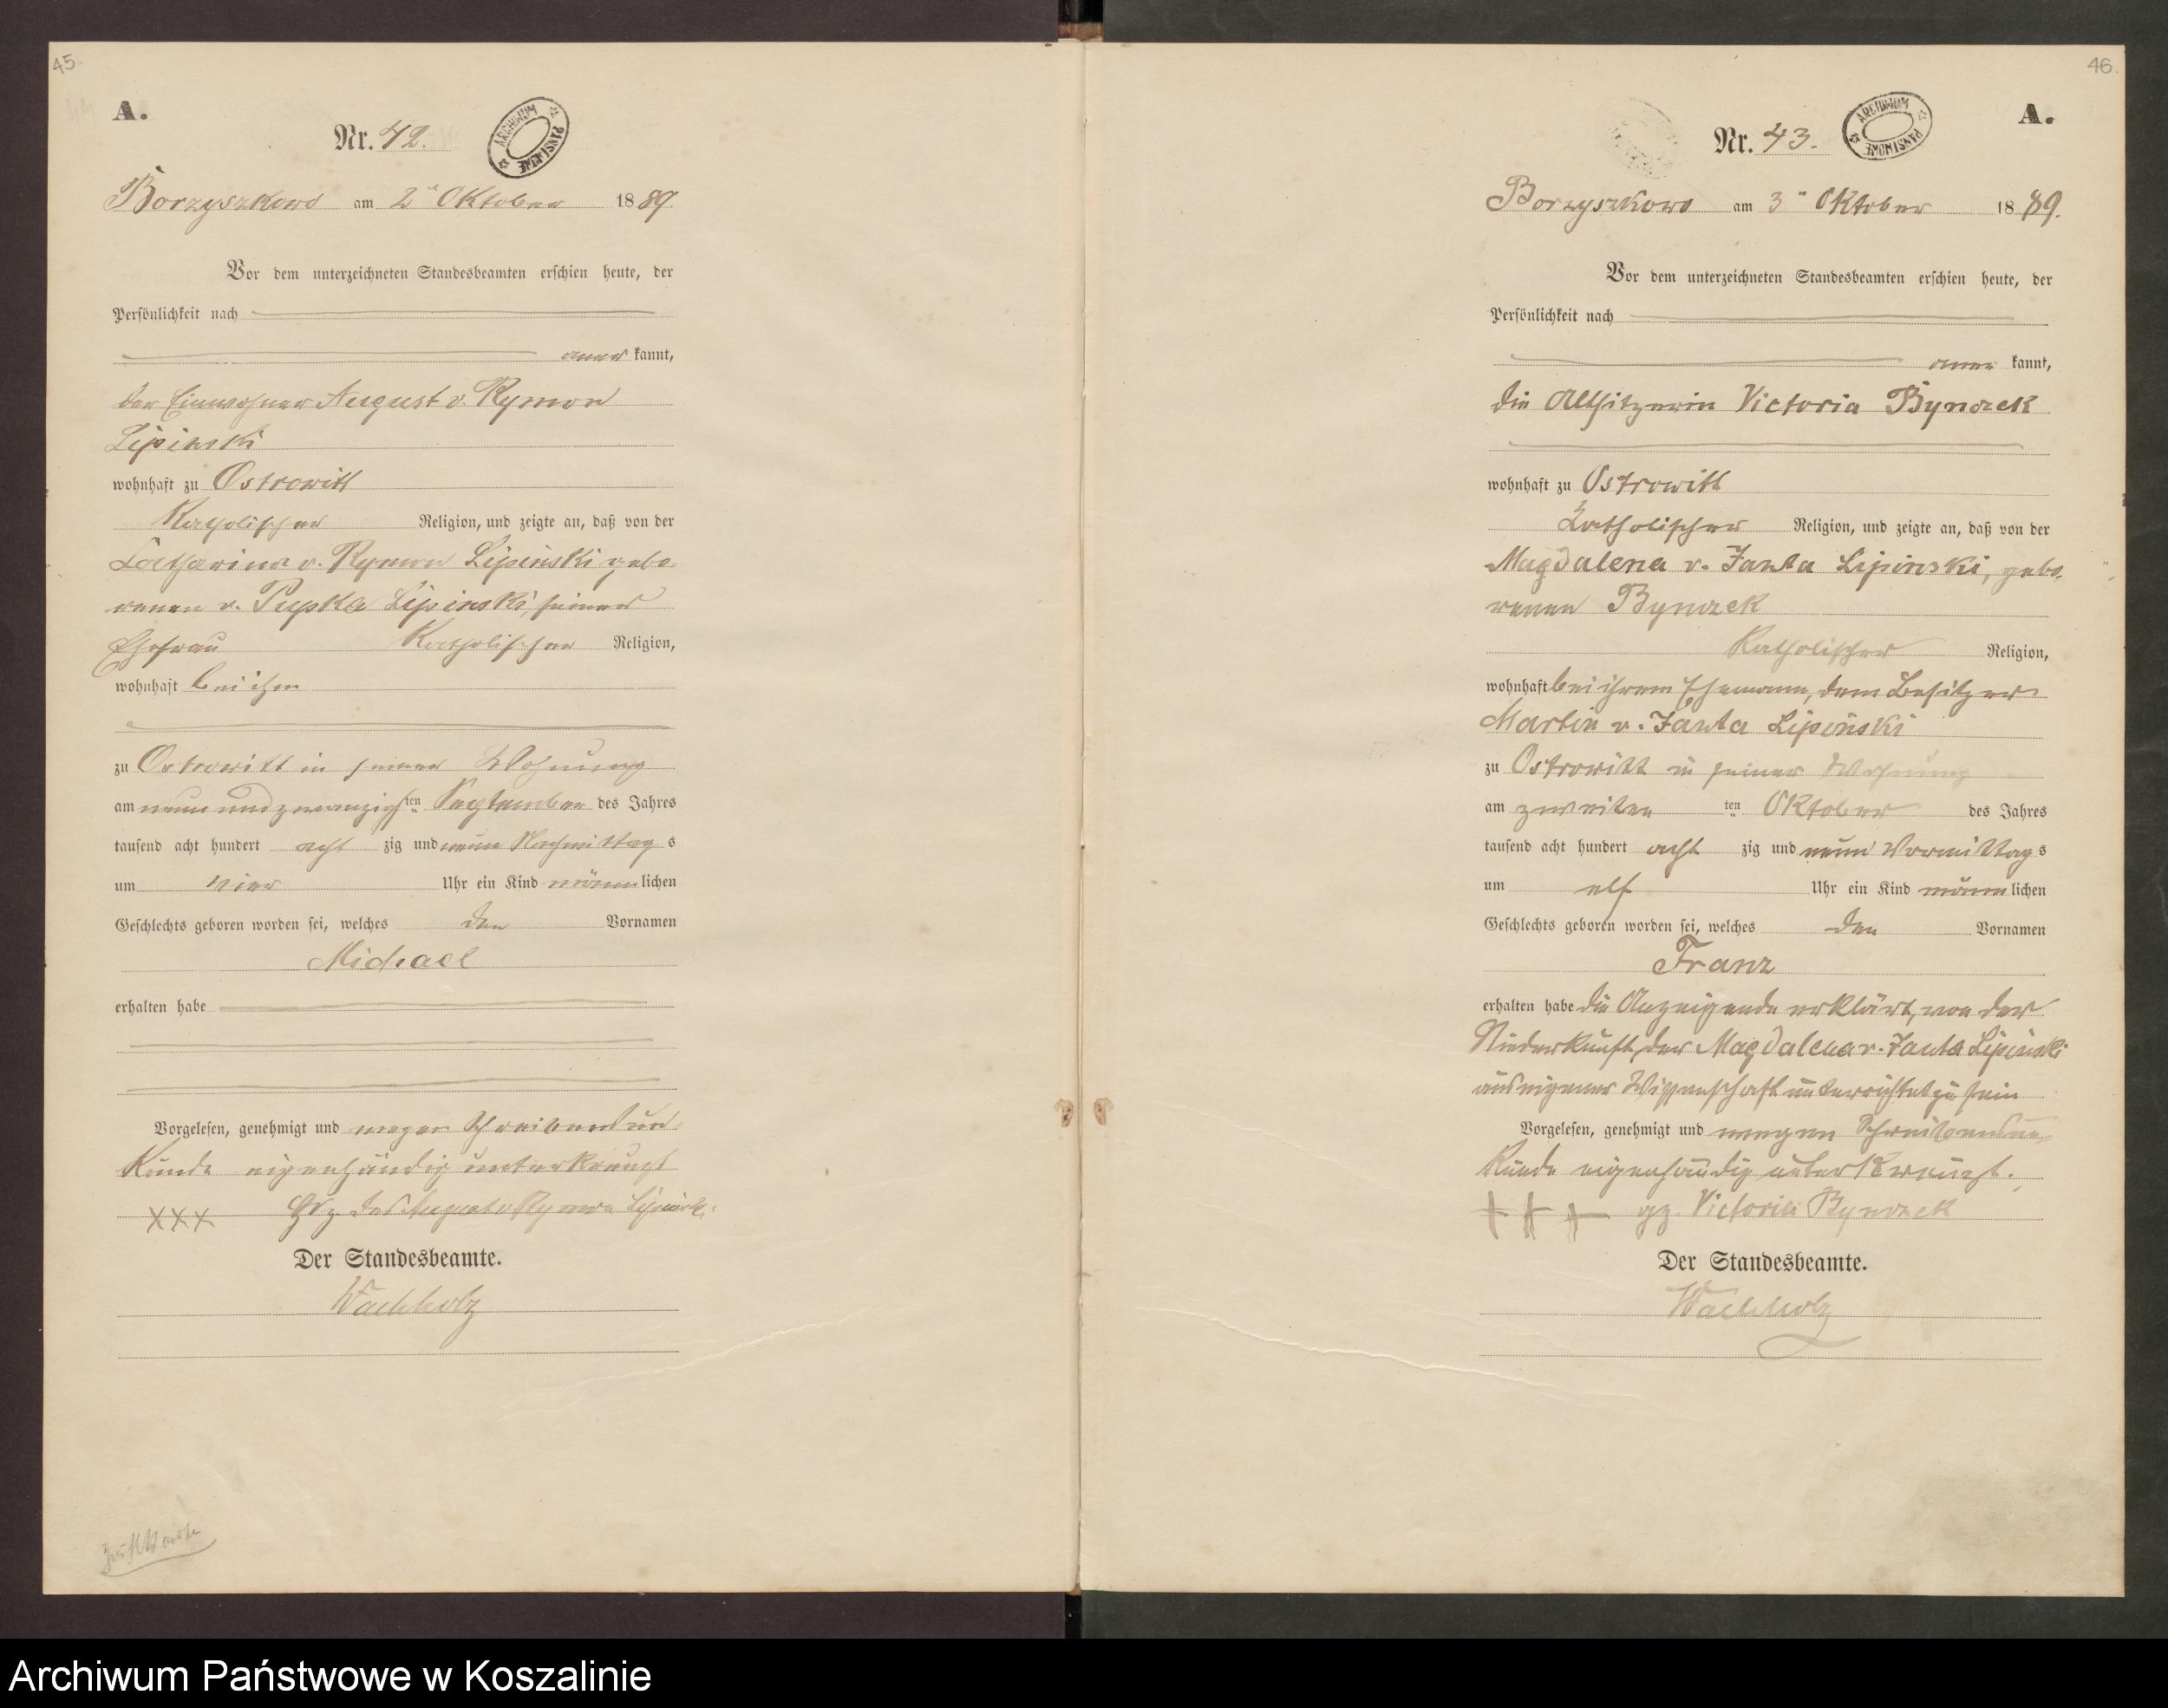 45.
A.
Nr. 42.
ARCHIWUM PAŃSTWOWE
Borzyszkowo am 2ten Oktober 1889.
Vor dem unterzeichneten Standesbeamten erschien heute, der
Persönlichkeit nach
kannt,
der Einwohner August v. Rymon
Lipinski
wohnhaft zu Ostrowitt
Katholischer Religion, und zeigte an, daß von der
Catharina v. Rymon Lipinski gebo-
renen v. Pupka Lipinski, seiner
Ehefrau Katholischer Religion,
wohnhaft bei ihm
zu Ostrowitt in seiner Wohnung
am neun und zwanzigsten September des Jahres
tausend acht hundert acht zig und neun Nachmittags
um vier Uhr ein Kind männlichen
Geschlechts geboren worden sei, welches den Vornamen
Michael
erhalten habe
Vorgelesen, genehmigt und wegen Schreibensun-
kunde eigenhändig unterkreuzt
XXX Hdz. des August v Rymon Lipinski
Der Standesbeamte.
Wachholz
46.
A.
Nr. 43.
ARCHIWUM PAŃSTWOWE
Borzyszkowo am 3ten Oktober 1889.
Vor dem unterzeichneten Standesbeamten erschien heute, der
Persönlichkeit nach
kannt,
die Altsitzerin Victoria Bynczek
wohnhaft zu Ostrowitt
Katholischer Religion, und zeigte an, daß von der
Magdalena v. Janta Lipinski, gebo-
renen Bynczek
Katholischer Religion,
wohnhaft bei ihrem Ehemann, dem Besitzer
Martin v. Janta Lipinski
zu Ostrowitt in seiner Wohnung
am zweiten ten Oktober des Jahres
tausend acht hundert acht zig und neun Vormittags
um elf Uhr ein Kind männlichen
Geschlechts geboren worden sei, welches den Vornamen
Franz
erhalten habe die Anzeigende erklärt, von der
Niederkunft der Magdalena v. Janta Lipinski
aus eigener Wissenschaft unterrichtet zu sein
Vorgelesen, genehmigt und wegen Schreibensun-
kunde eigenhändig unterkreuzt.
+++ gz. Victoria Bynczek
Der Standesbeamte.
Wachholz
Archiwum Państwowe w Koszalinie